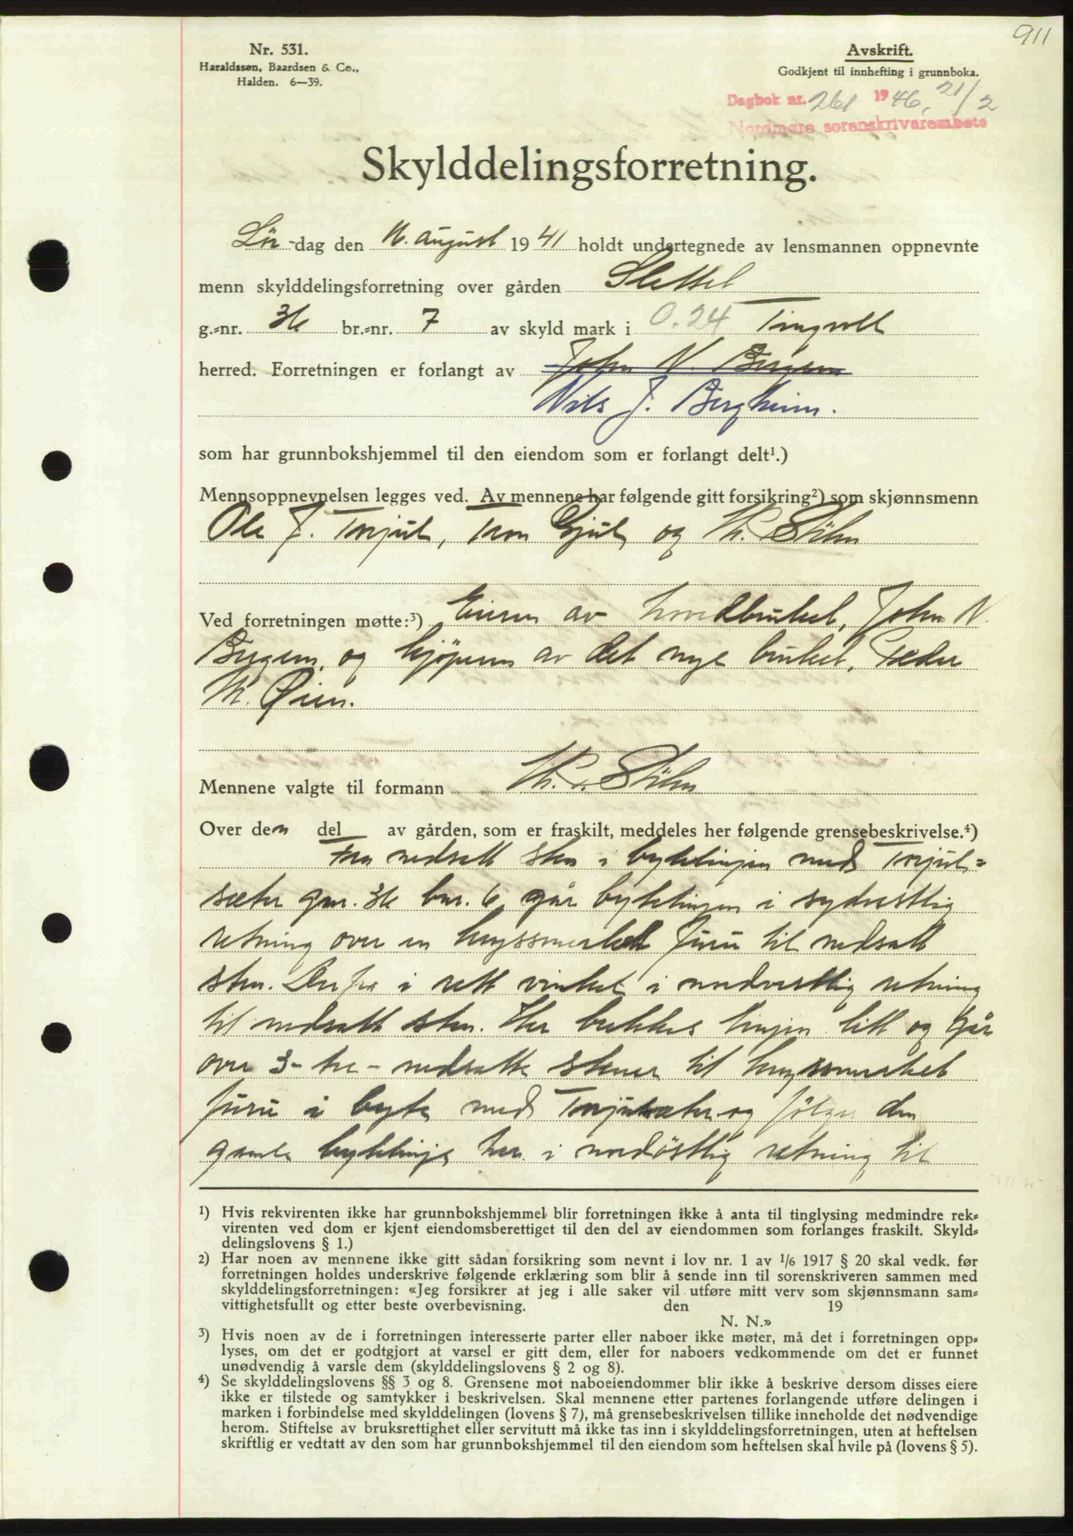 911
Nr. 531.
Haraldssøn, Baardsen & Co.,
Halden. 6—39.
Avskrift.
Godkjent til innhefting i grunnboka.
Dagbok nr. 261 1946, 21/2
Nordmøre sorenskrivarembete
Skylddelingsforretning.
Lør-dag den 16. august 1941 holdt undertegnede av lensmannen oppnevnte
menn skylddelingsforretning over gården Slettet
g.-nr. 36 br.-nr. 7 av skyld mark i 0.24 Tingvoll
herred. Forretningen er forlangt av John N. Bergem
Nils J. Bergheim.
som har grunnbokshjemmel til den eiendom som er forlangt delt¹.)
Mennsoppnevnelsen legges ved. Av mennene har følgende gitt forsikring²) som skjønnsmenn
Ole J. Torjul, Tron Gjul og
Ved forretningen møtte:³) Eieren av hovedbruket, John N.
Bergem, og kjøperen av det nye bruket, Peder
Øien.
Mennene valgte til formann
Over den del av gården, som er fraskilt, meddeles her følgende grensebeskrivelse.⁴)
Fra nedsatt sten i byttelinjen med Torjul=
sæter gnr. 36 bnr. 6 går byttelinjen i sydvestlig
retning over en kryssmerket furu til nedsatt
sten. Derfra i rett vinkel i nordvestlig retning
til nedsatt sten. Her brekkes linjen litt og går
over 3- tre - nedsatte stener til kryssmerket
furu i byte med Torjulsæter og følger den
gamle byttelinje her i nordøstlig retning til
¹) Hvis rekvirenten ikke har grunnbokshjemmel blir forretningen ikke å anta til tinglysing medmindre rek=
virenten ved dom er kjent eiendomsberettiget til den del av eiendommen som forlanges fraskilt. Skyld=
delingslovens § 1.)
²) Har noen av mennene ikke gitt sådan forsikring som nevnt i lov nr. 1 av 1/6 1917 § 20 skal vedk. før
forretningen holdes underskrive følgende erklæring som blir å sende inn til sorenskriveren sammen med
skylddelingsforretningen: «Jeg forsikrer at jeg i alle saker vil utføre mitt verv som skjønnsmann sam=
vittighetsfullt og etter beste overbevisning. den 19
N. N.»
³) Hvis noen av de i forretningen interesserte parter eller naboer ikke møter, må det i forretningen opp=
lyses, om det er godtgjort at varsel er gitt dem, eller for naboers vedkommende om det er funnet
unødvendig å varsle dem (skylddelingslovens § 2 og 8).
⁴) Se skylddelingslovens §§ 3 og 8. Grensene mot naboeiendommer blir ikke å beskrive dersom disses eiere
ikke er tilstede og samtykker i beskrivelsen. Skal mennene etter partenes forlangende utføre delingen i
marken i forbindelse med skylddelingen (lovens § 7), må grensebeskrivelsen tillike inneholde det nødvendige
herom. Stiftelse av bruksrettighet eller servitutt må ikke tas inn i skylddelingsforretningen, uten at heftelsen
skriftlig er vedtatt av den som har grunnbokshjemmel til den eiendom som heftelsen skal hvile på (lovens § 5).